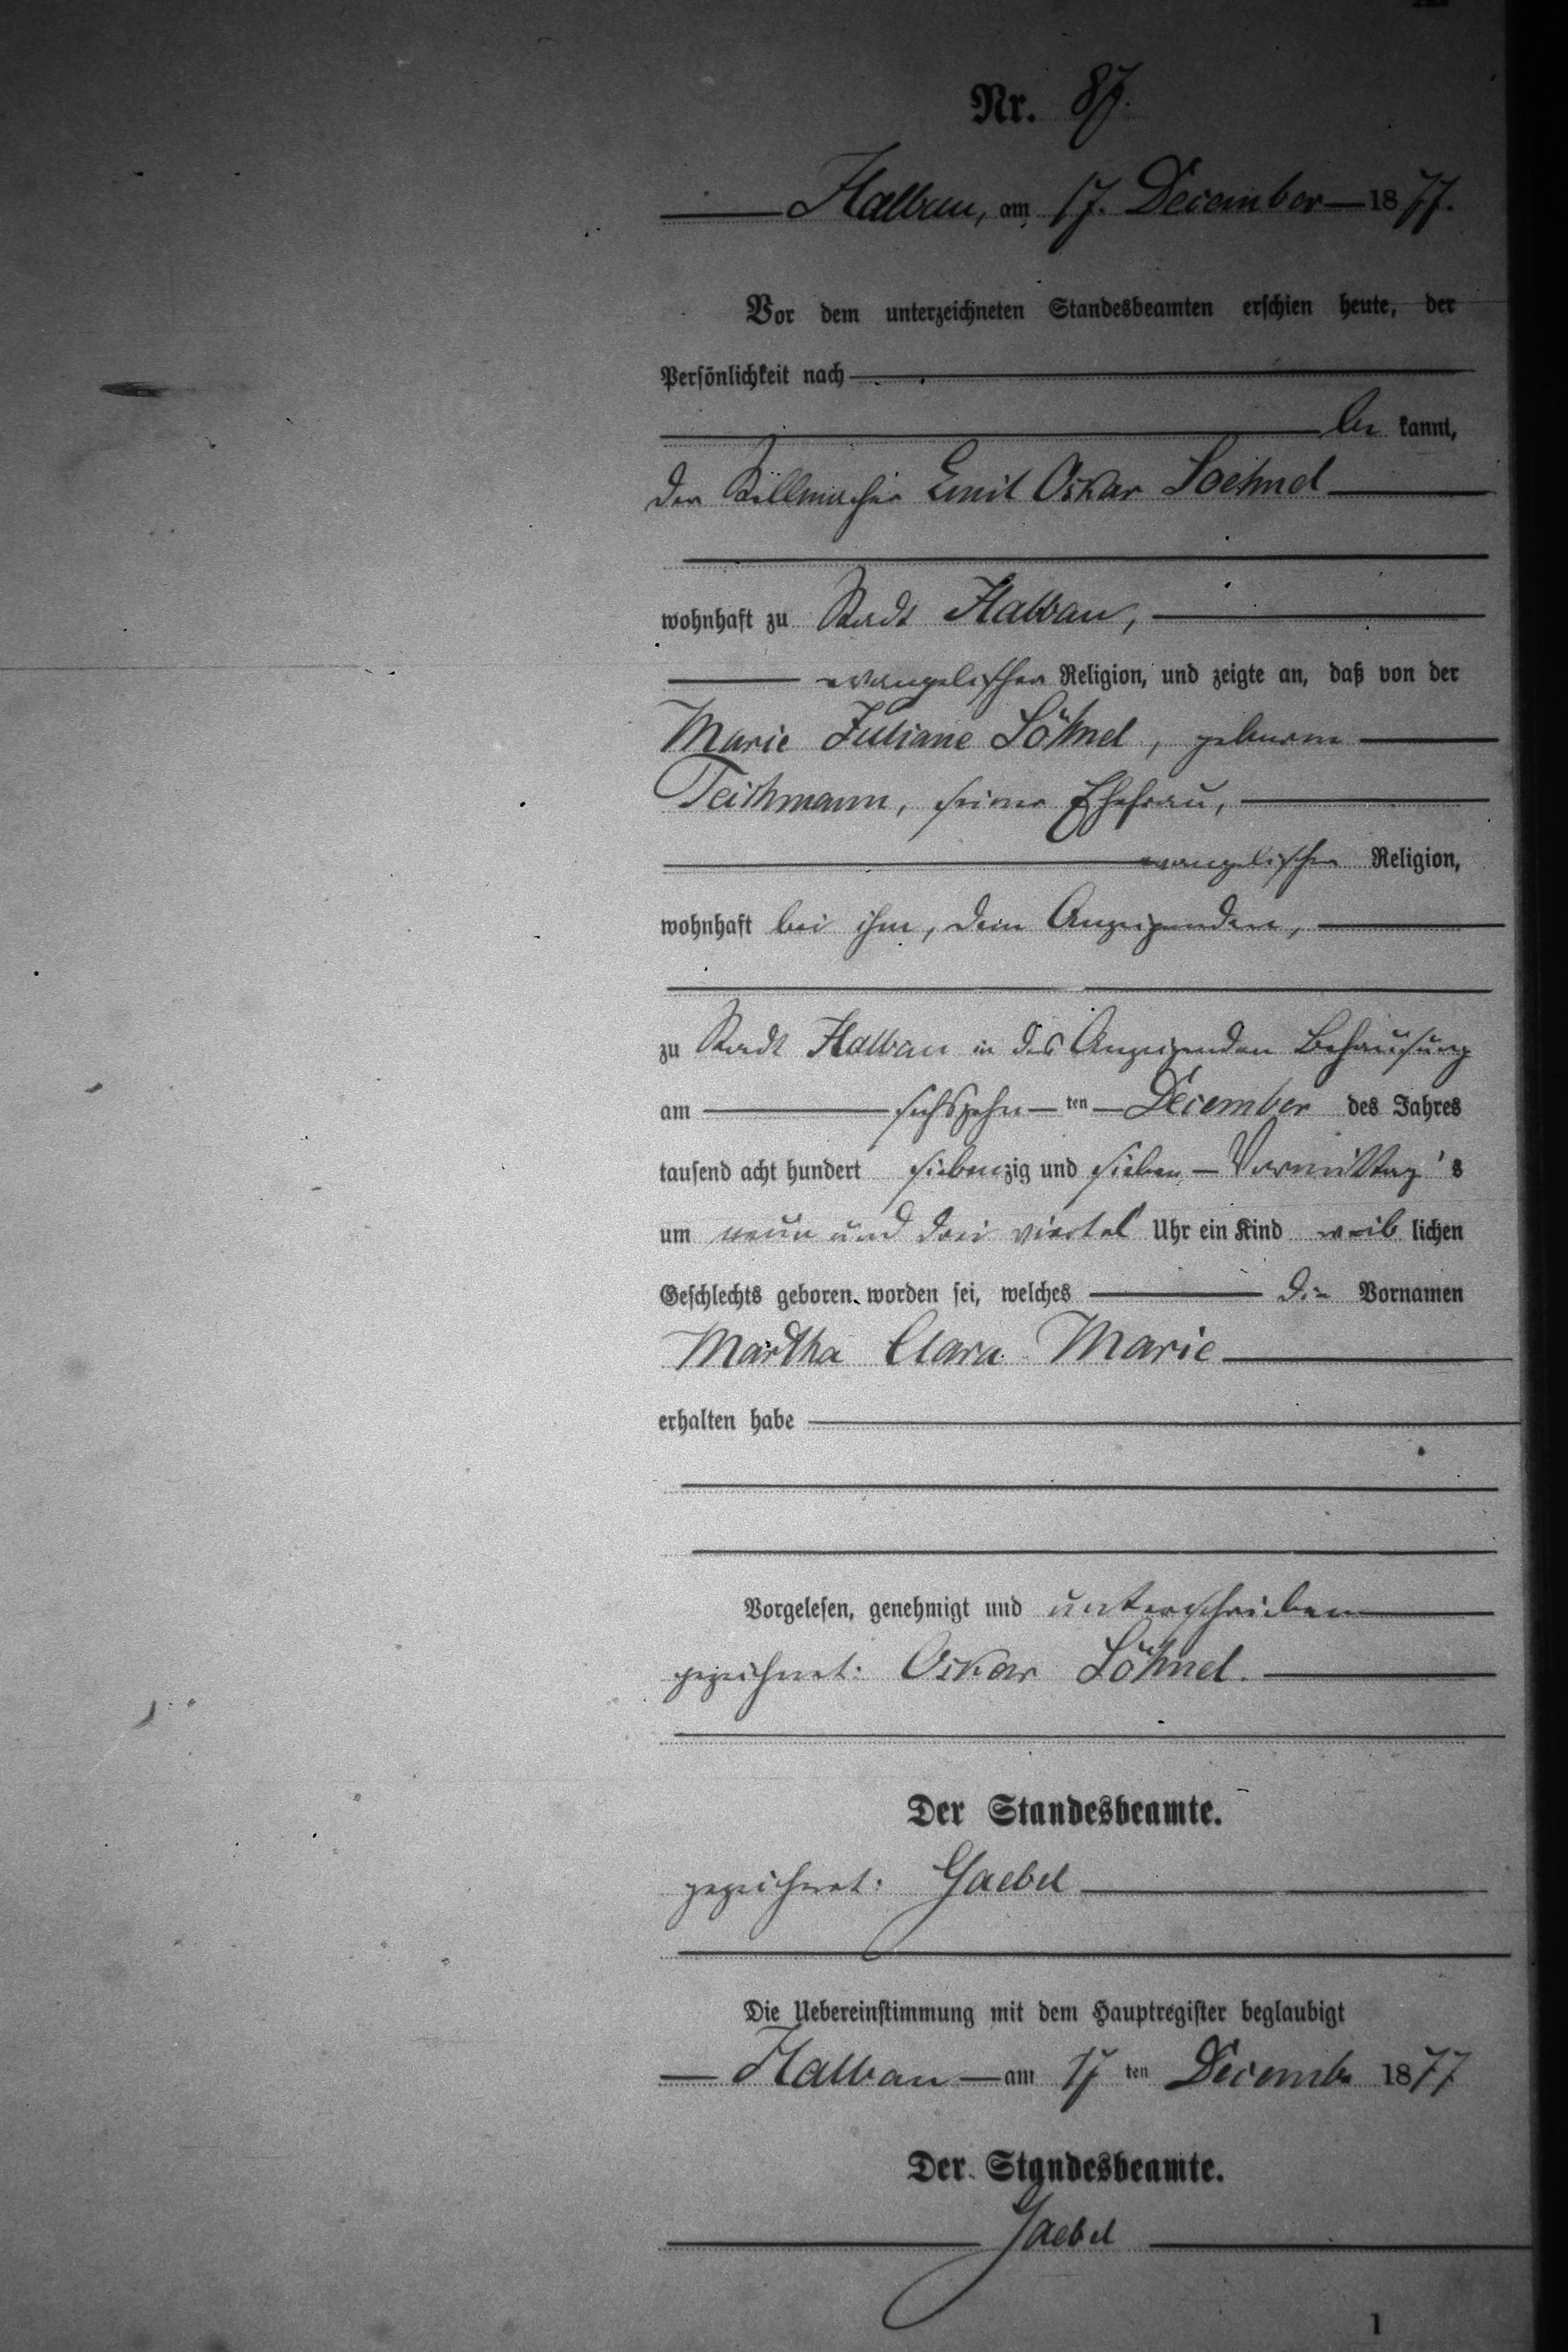 Nr. 87.
Halbau, am 17. December 1877.
Vor dem unterzeichneten Standesbeamten erschien heute, der
Persönlichkeit nach
be kannt,
der Stellmacher Emil Oskar Soehnel
wohnhaft zu Stadt Halbau,
evangelischer Religion, und zeigte an, daß von der
Marie Juliane Söhnel, geborne
Teichmann, seiner Ehefrau,
evangelischer Religion,
wohnhaft bei ihm, dem Anzeigenden,
zu Stadt Halbau in des Anzeigenden Behausung
am sechszehn ten December des Jahres
tausend acht hundert siebenzig und sieben Vormittag's
um neun und drei viertel Uhr ein Kind weib lichen
Geschlechts geboren worden sei, welches die Vornamen
Martha Clara Marie
erhalten habe
Vorgelesen, genehmigt und unterschrieben
gezeichnet: Oskar Söhnel.
Der Standesbeamte.
gezeichnet: Gaebel
Die Uebereinstimmung mit dem Hauptregister beglaubigt
Halbau am 17 ten Decembr 1877
Der Standesbeamte.
Gaebel
1